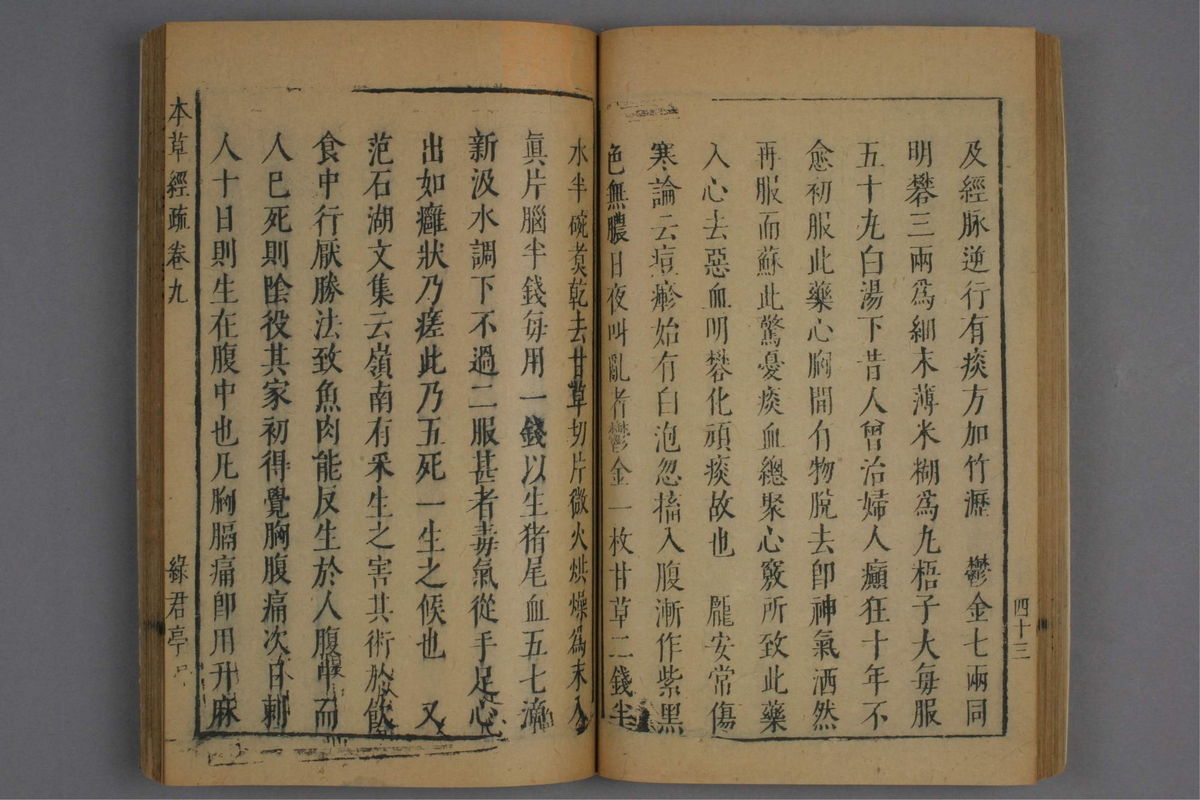 及經脉逆行有痰方加竹瀝　鬱金七兩同
明礬三兩爲細末薄米糊爲丸梧子大每服
五十九白湯下昔人曾治婦人癲狂十年不
愈初服此藥心胸間有物脫去卽神氣洒然
再服而蘇此驚憂痰血總聚心竅所致此藥
入心去惡血明礬化頑痰故也　龐安常傷
寒論云痘疹始有白泡忽搐入腹漸作紫黑
色無膿日夜叫亂者鬱金一枚甘草二錢半
四十三
水半碗煮乾去甘草切片微火烘燥爲末入
眞片腦半錢每用一錢以生猪尾血五七滴
新汲水調下不過二服甚者毒氣從手足心
出如癰狀乃瘥此乃五死一生之候也　又
范石湖文集云嶺南有采生之害其術於飲
食中行厭勝法致魚肉能反生於人腹中而
人已死則陰役其家初得覺胸腹痛次日刺
人十日則生在腹中也凡胸膈痛卽用升麻
本草經疏卷九
綠君亭